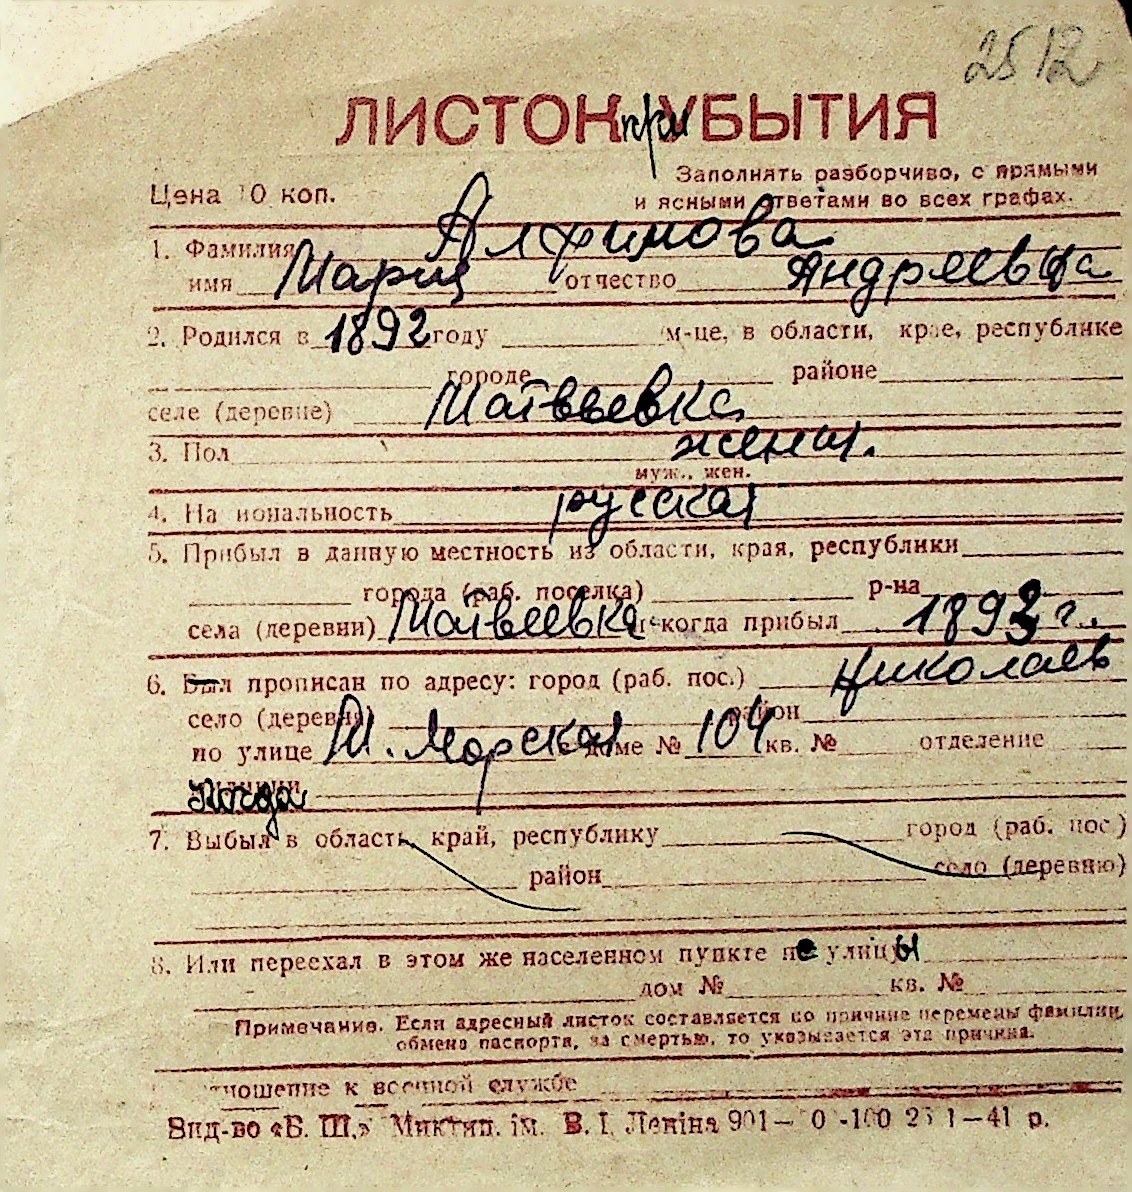 2512
ЛИСТОК при УБЫТИЯ
Заполнять разборчиво, с прямыми
Цена 10 коп.
и ясными ответами во всех графах.
1. Фамилия Алфимова
имя Мария отчество Андреевна
2. Родился в 1892 году м-це, в области, крае, республике
городе районе
селе (деревне) Матвеевка
3. Пол женск.
муж., жен.
4. На иональность русская
5. Прибыл в данную местность из области, края, республики
города (раб. поселка) р-на
села (деревни) Матвеевка и когда прибыл 1893 г.
6. Был прописан по адресу: город (раб. пос.) Николаев
село (деревня) район
по улице М. Морская доме № 104 кв. № отделение
7. Выбыл в область, край, республику город (раб. пос.)
район село (деревню)
8. Или переехал в этом же населенном пункте пе улицы
дом № кв. №
Примечание. Если адресный листок составляется по причине перемены фамилии,
обмена паспорта, за смертью, то указывается эта причина.
тношение к военной службе
Вид-во «Б. Ш.» Миктип. ім. В. І. Леніна 901— 0 -100 25 1—41 р.